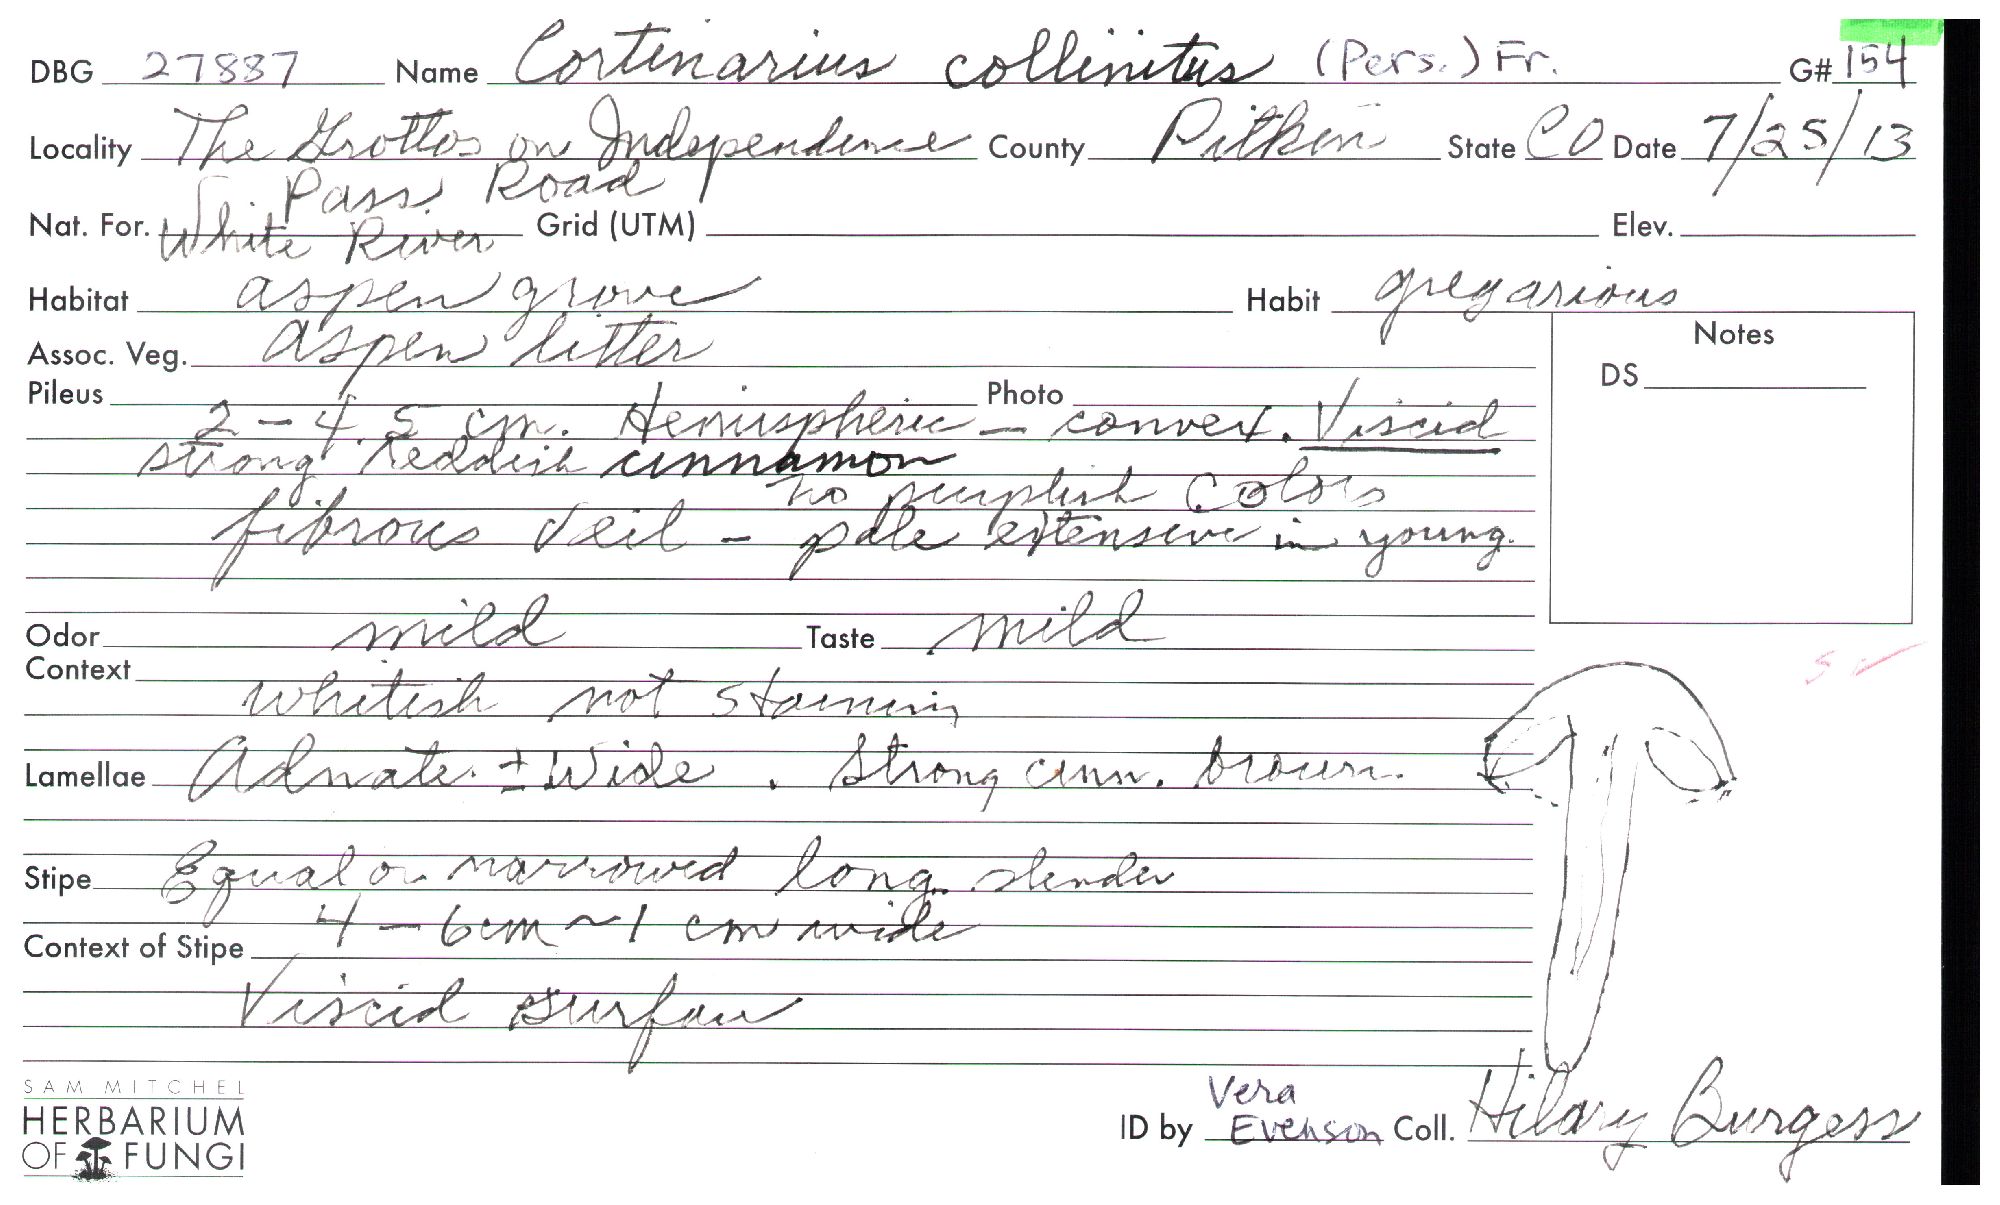 DBG 27887 Name Cortinarius collinitus (Pers.) Fr. G# 154
Locality The Grottos on Independence County Pitkin State CO Date 7/25/13
Pass Road
Nat. For. White River Grid (UTM) Elev.
Habitat aspen grove Habit gregarious
Assoc. Veg. aspen litter
Notes
DS
Pileus Photo
2 – 4.5 cm. Hemispheric – convex. Viscid
strong reddish cinnamon
no purplish colors
fibrous veil – pale extensive in young.
Odor mild Taste mild
Context
whitish not staining
Lamellae Adnate. ± wide. Strong cinn. brown.
Stipe Equal or narrowed long slender
4 – 6cm ~ 1 cm wide
Context of Stipe
Viscid surface
SAM MITCHEL
HERBARIUM
OF FUNGI
ID by Vera Evenson Coll. Hilary Burgess